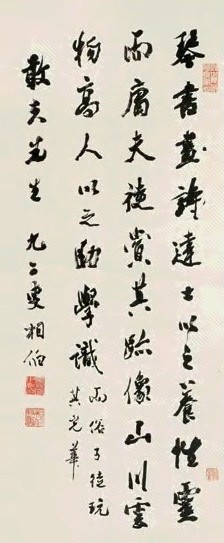 琴書畫詩達士以之養性靈
而庸夫徒賞其跡像山川雲
物高人以之助學識
而俗子徒玩
其光華
敢夫先生 九二叟相伯